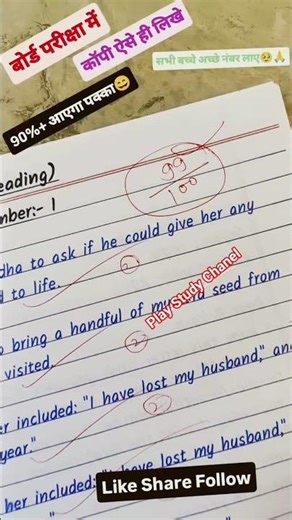 बोर्ड परीक्षा में
कॉपी ऐसे ही लिखे
सभी बच्चे अच्छे नंबर लाए🥺🙏
90%+ आएगा पक्का😄
eading)
99
100
mber:- 1
dha to ask if he could give her any
d to life.
2
o bring a handful of mustard seed from
visited.
2
Play Study Chanel
er included: "I have lost my husband," an
year."
2
her included: "I have lost my husband,"
Like Share Follow